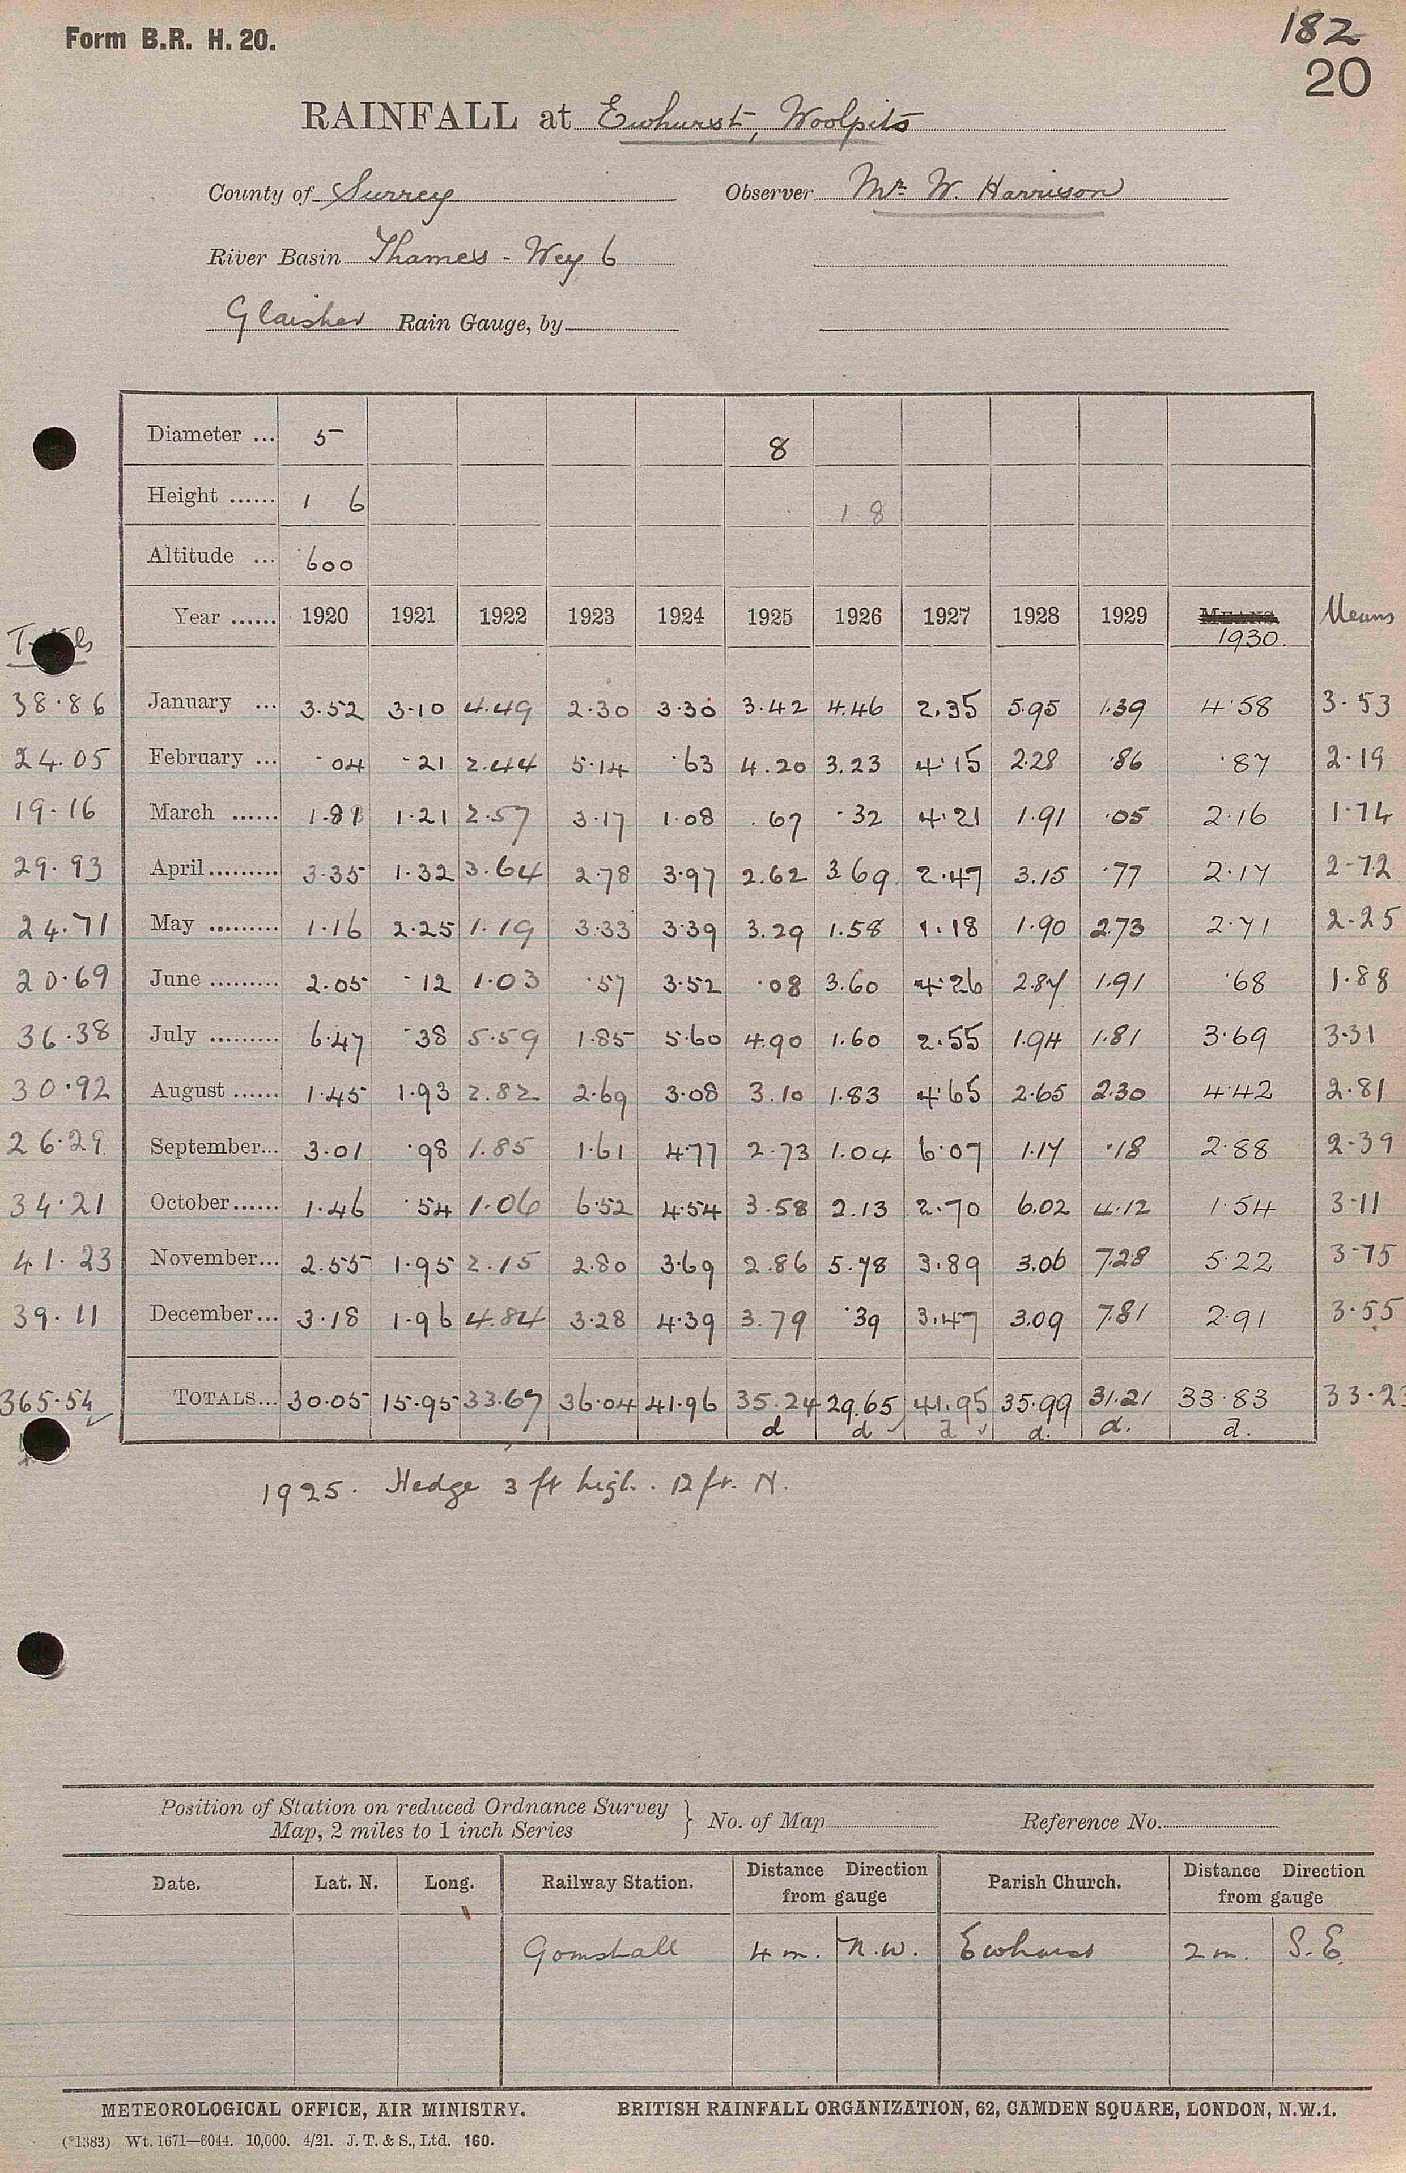 Form B.R. H. 20.
182
20
RAINFALL at Ewhurst, Woolpits
County of Surrey Observer Mr. W. Harrison
River Basin Thames - Wey 6
Glaisher Rain Gauge, by
Diameter ... 5 8
Height ...... 1 6 1 8
Altitude ... 600
Totals Year ...... 1920 1921 1922 1923 1924 1925 1926 1927 1928 1929 MEANS. 1930. Means
38.86 January ... 3.52 3.10 4.49 2.30 3.30 3.42 4.46 2.35 5.95 1.39 4.58 3.53
24.05 February ... .04 .21 2.44 5.14 .63 4.20 3.23 4.15 2.28 .86 .87 2.19
19.16 March ...... 1.81 1.21 2.57 3.17 1.08 .67 .32 4.21 1.91 .05 2.16 1.74
29.93 April......... 3.35 1.32 3.64 2.78 3.97 2.62 3.69 2.47 3.15 .77 2.17 2.72
24.71 May ......... 1.16 2.25 1.19 3.33 3.39 3.29 1.58 1.18 1.90 2.73 2.71 2.25
20.69 June ......... 2.05 .12 1.03 .57 3.52 .08 3.60 4.26 2.87 1.91 .68 1.88
36.38 July ......... 6.47 .38 5.59 1.85 5.60 4.90 1.60 2.55 1.94 1.81 3.69 3.31
30.92 August ...... 1.45 1.93 2.82 2.69 3.08 3.10 1.83 4.65 2.65 2.30 4.42 2.81
26.29 September... 3.01 .98 1.85 1.61 4.77 2.73 1.04 6.07 1.17 .18 2.88 2.39
34.21 October...... 1.46 .54 1.06 6.52 4.54 3.58 2.13 2.70 6.02 4.12 1.54 3.11
41.23 November... 2.55 1.95 2.15 2.80 3.69 2.86 5.78 3.89 3.06 7.28 5.22 3.75
39.11 December... 3.18 1.96 4.84 3.28 4.39 3.79 .39 3.47 3.09 7.81 2.91 3.55
365.54 TOTALS... 30.05 15.95 33.67 36.04 41.96 35.24 29.65 41.95 35.99 31.21 33.83 33.23
d d d d. d. d.
1925. Hedge 3 ft high. 12 ft. N.
Position of Station on reduced Ordnance Survey Map, 2 miles to 1 inch Series } No. of Map Reference No.
Date. Lat. N. Long. Railway Station. Distance Direction from gauge Parish Church. Distance Direction from gauge
Gomshall 4 m. N.W. Ewhurst 2 m. S.E.
METEOROLOGICAL OFFICE, AIR MINISTRY. BRITISH RAINFALL ORGANIZATION, 62, CAMDEN SQUARE, LONDON, N.W.1.
(*1383) Wt. 1671—6044. 10,000. 4/21. J. T. & S., Ltd. 160.